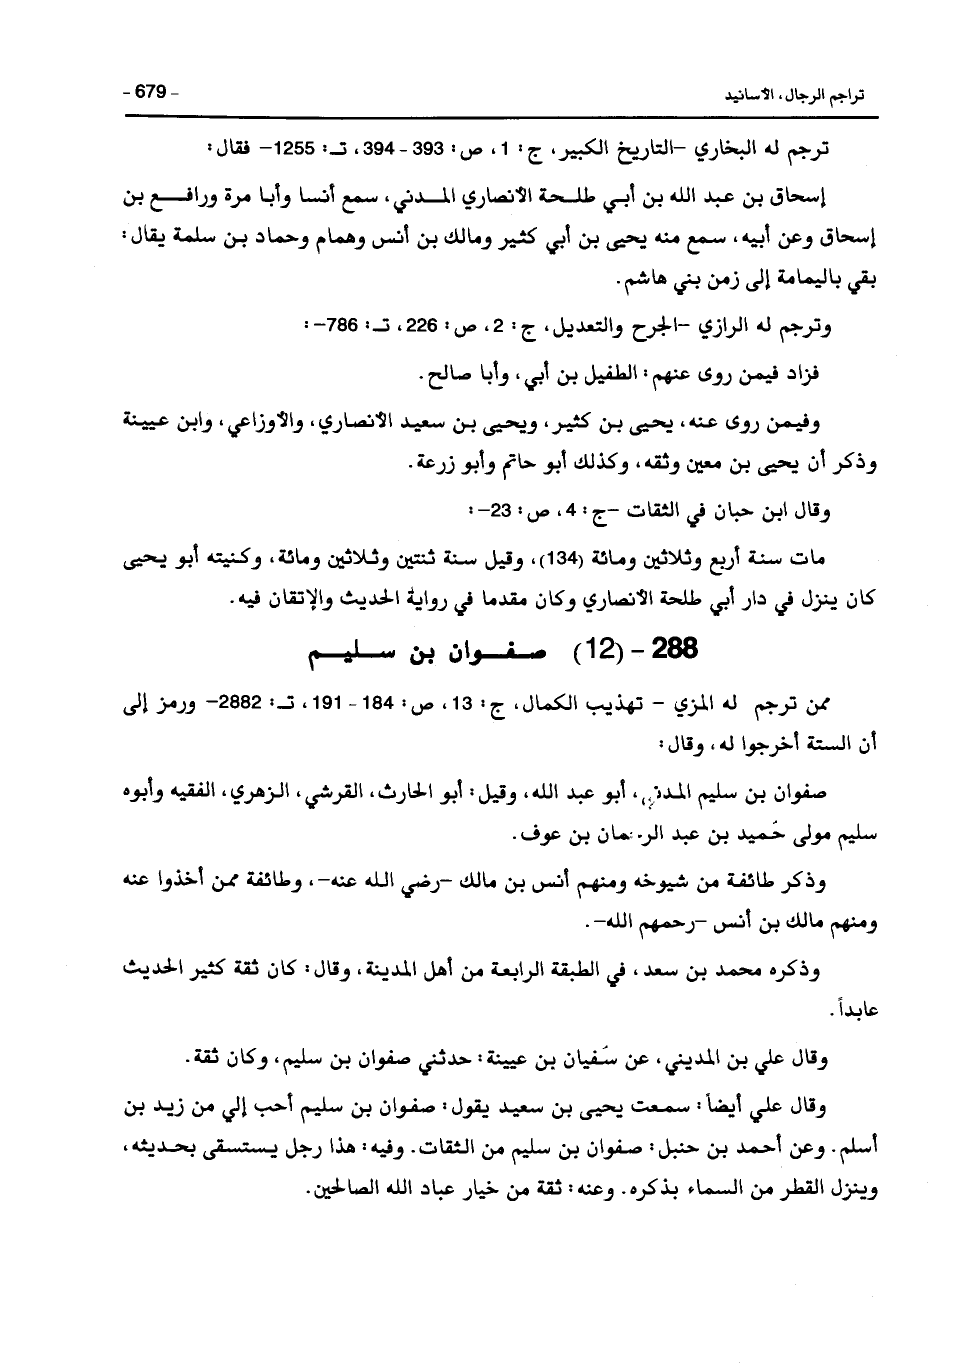 تراجم الرجال، الأسانيد - 679 -
ترجم له البخاري –التاريخ الكبير، ج: 1، ص: 393 - 394، تـ: 1255– فقال:
إسحاق بن عبد الله بن أبي طلحة الأنصاري المدني، سمع أنسا وأبا مرة ورافع بن
إسحاق وعن أبيه، سمع منه يحيى بن أبي كثير ومالك بن أنس وهمام وحماد بن سلمة يقال:
بقي باليمامة إلى زمن بني هاشم.
وترجم له الرازي –الجرح والتعديل، ج: 2، ص: 226، تـ: 786–:
فزاد فيمن روى عنهم: الطفيل بن أبي، وأبا صالح.
وفيمن روى عنه، يحيى بن كثير، ويحيى بن سعيد الأنصاري، والأوزاعي، وابن عيينة
وذكر أن يحيى بن معين وثقه، وكذلك أبو حاتم وأبو زرعة.
وقال ابن حبان في الثقات –ج: 4، ص: 23–:
مات سنة أربع وثلاثين ومائة (134)، وقيل سنة ثنتين وثلاثين ومائة، وكنيته أبو يحيى
كان ينزل في دار أبي طلحة الأنصاري وكان مقدما في رواية الحديث والإتقان فيه.
288 - (12) صفوان بن سليم
ممن ترجم له المزي – تهذيب الكمال، ج: 13، ص: 184 - 191، تـ: 2882– ورمز إلى
أن الستة أخرجوا له، وقال:
صفوان بن سليم المدني، أبو عبد الله، وقيل: أبو الحارث، القرشي، الزهري، الفقيه وأبوه
سليم مولى حُميد بن عبد الرحمان بن عوف.
وذكر طائفة من شيوخه ومنهم أنس بن مالك –رضي الله عنه–، وطائفة ممن أخذوا عنه
ومنهم مالك بن أنس –رحمهم الله–.
وذكره محمد بن سعد، في الطبقة الرابعة من أهل المدينة، وقال: كان ثقة كثير الحديث
عابداً.
وقال علي بن المديني، عن سُفيان بن عيينة: حدثني صفوان بن سليم، وكان ثقة.
وقال علي أيضاً: سمعت يحيى بن سعيد يقول: صفوان بن سليم أحب إلي من زيد بن
أسلم. وعن أحمد بن حنبل: صفوان بن سليم من الثقات. وفيه: هذا رجل يستسقى بحديثه،
وينزل القطر من السماء بذكره. وعنه: ثقة من خيار عباد الله الصالحين.